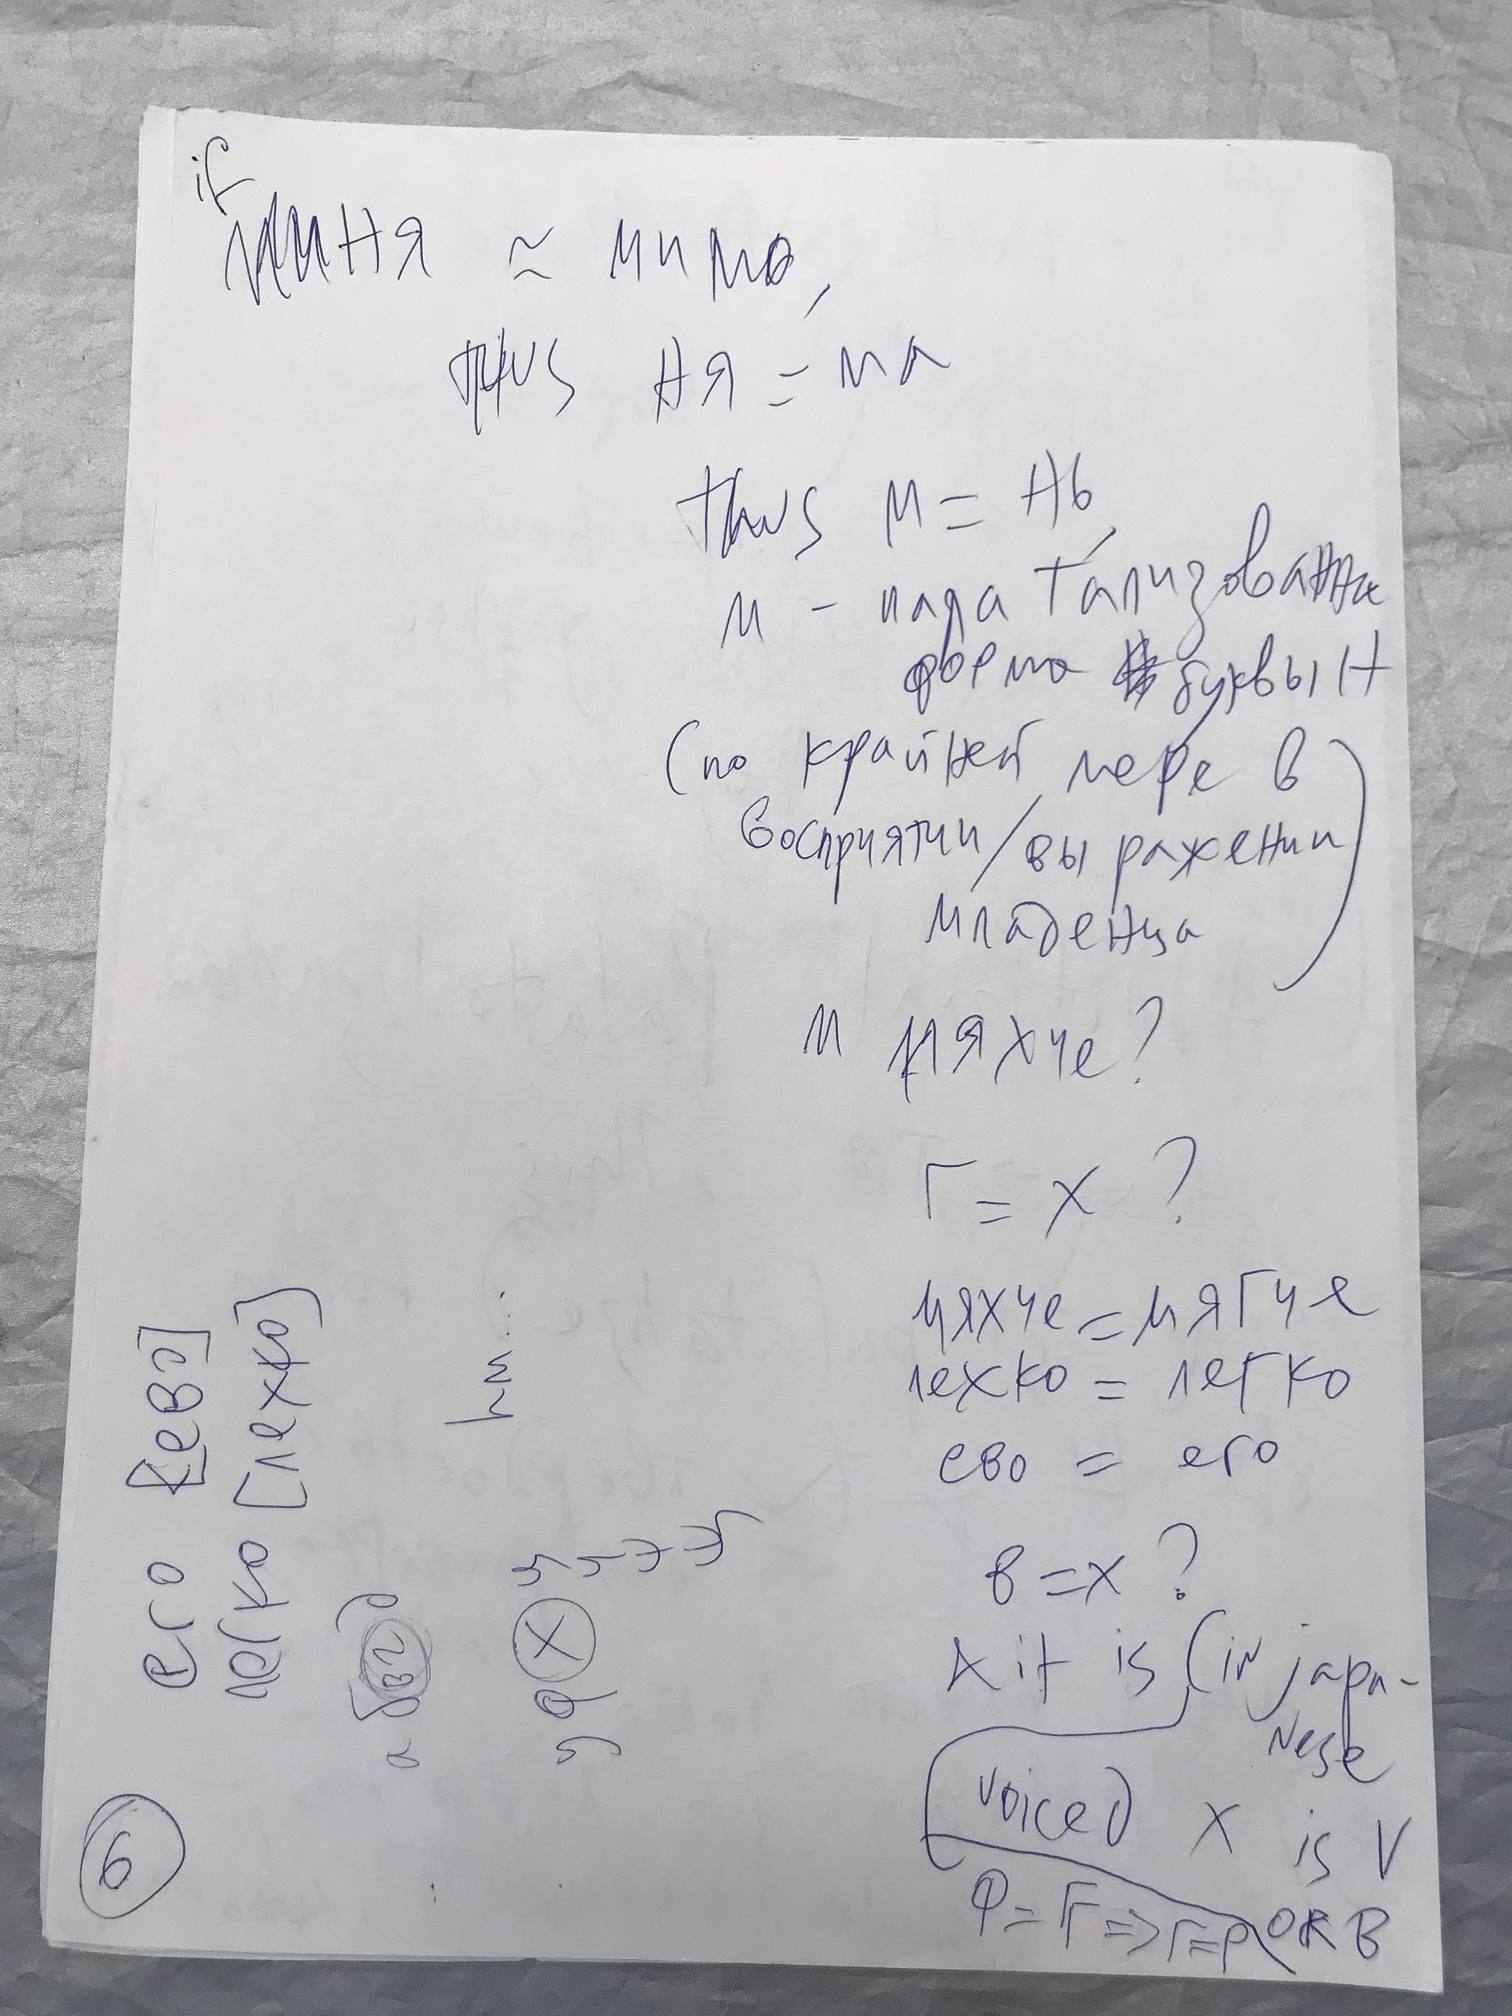 if
миня ≈ мимо,
thus ня = ма
thus м = нь,
м - палатализована
форма буквы Н
(по крайней мере в
восприятии/выражении
младенца)
м мяхче?
Г = X ?
мяхче = мягче
лехко = легко
ево = его
в = х ?
it is (in japa-
nese
voiced X is V
OR B
его [ево]
легко [лехко]
hm...
6